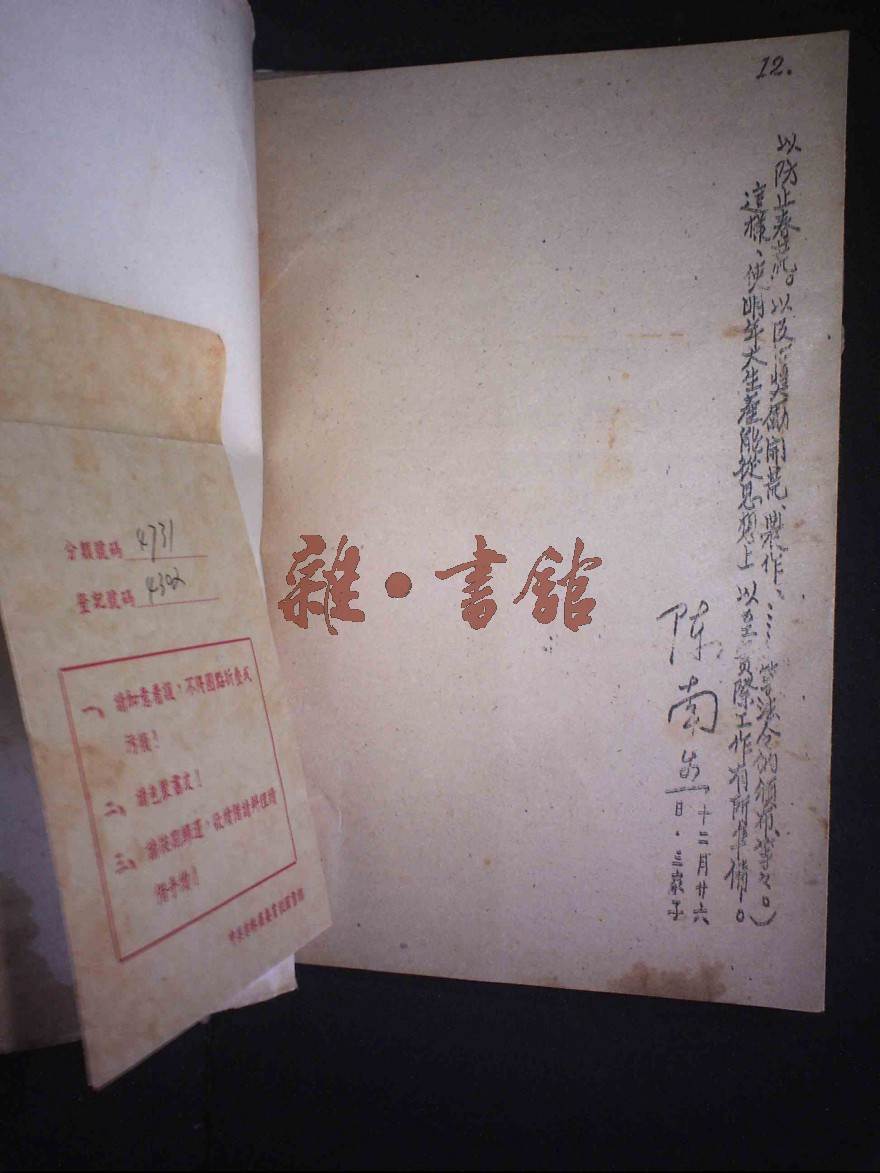 12.
以防止春荒。以及獎勵開荒、興作、……等法令的頒布等々。）
這樣、使明年大生產能從思想上以至實際工作有所準備。
陈
十二月廿六
日·三家子
雜·書館
分類號碼 4731
登記號碼 4302
一、請加意看護，不得圈點折疊及
污損！
二、請包裝書皮！
三、請按期歸還，欲續借請辦理續
借手續！